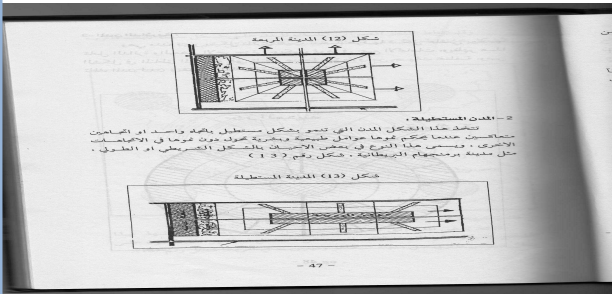 شكل (12) المدينة المربعة
2- المدن المستطيلة .
تتخذ هذا الشكل المدن التي تنمو بشكل مستطيل باتجاه واحد او اتجاهين
متعاكسين عندما يحكم نموها عوامل طبيعية وبشرية تحول دون نموها في الاتجاهات
الاخرى ، ويسمى هذا النوع في بعض الاحيان بالشكل الشريطي او الطولي ،
مثل مدينة برمنجهام البريطانية ، شكل رقم (13)
شكل (13) المدينة المستطيلة
- 47 -